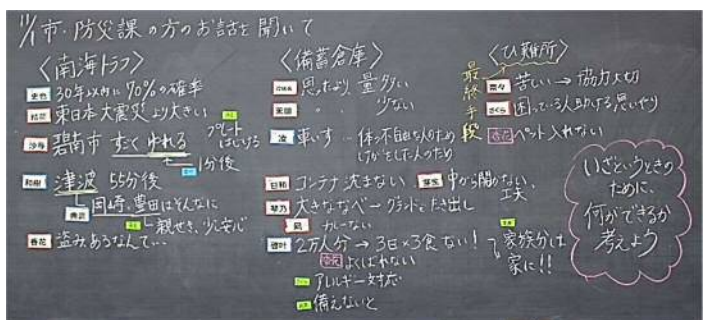 11/1 市・防災課の方のお話を聞いて
〈南海トラフ〉
史也 30年以内に70%の確率
結花 東日本大震災より大きい
碧南市 すごくゆれる
プレート
はいりる
1分後
和樹 津波 55分後
岡崎、豊田はそんなに
親せき、少し安心
香花 盗みあるなんて…
〈備蓄倉庫〉
思ったより 量多い
〃 少ない
凌 車いす…体の不自由な人のため
しがをした人のため
日和 コンテナ 沈まない
芽生 中から開かない、
工夫
琴乃 大きななべ→グランドで たき出し
カレーない
2万人分→3日×3食ない!
杏花 よくばれない
アレルギー対応
備えないと
家族分は
家に!!
〈ひ難所〉
最終手段
奈々 苦しい→協力大切
さくら 困っている人助ける思いやり
杏花 ペット入れない
いざというときの
ために、
何ができるか
考えよう